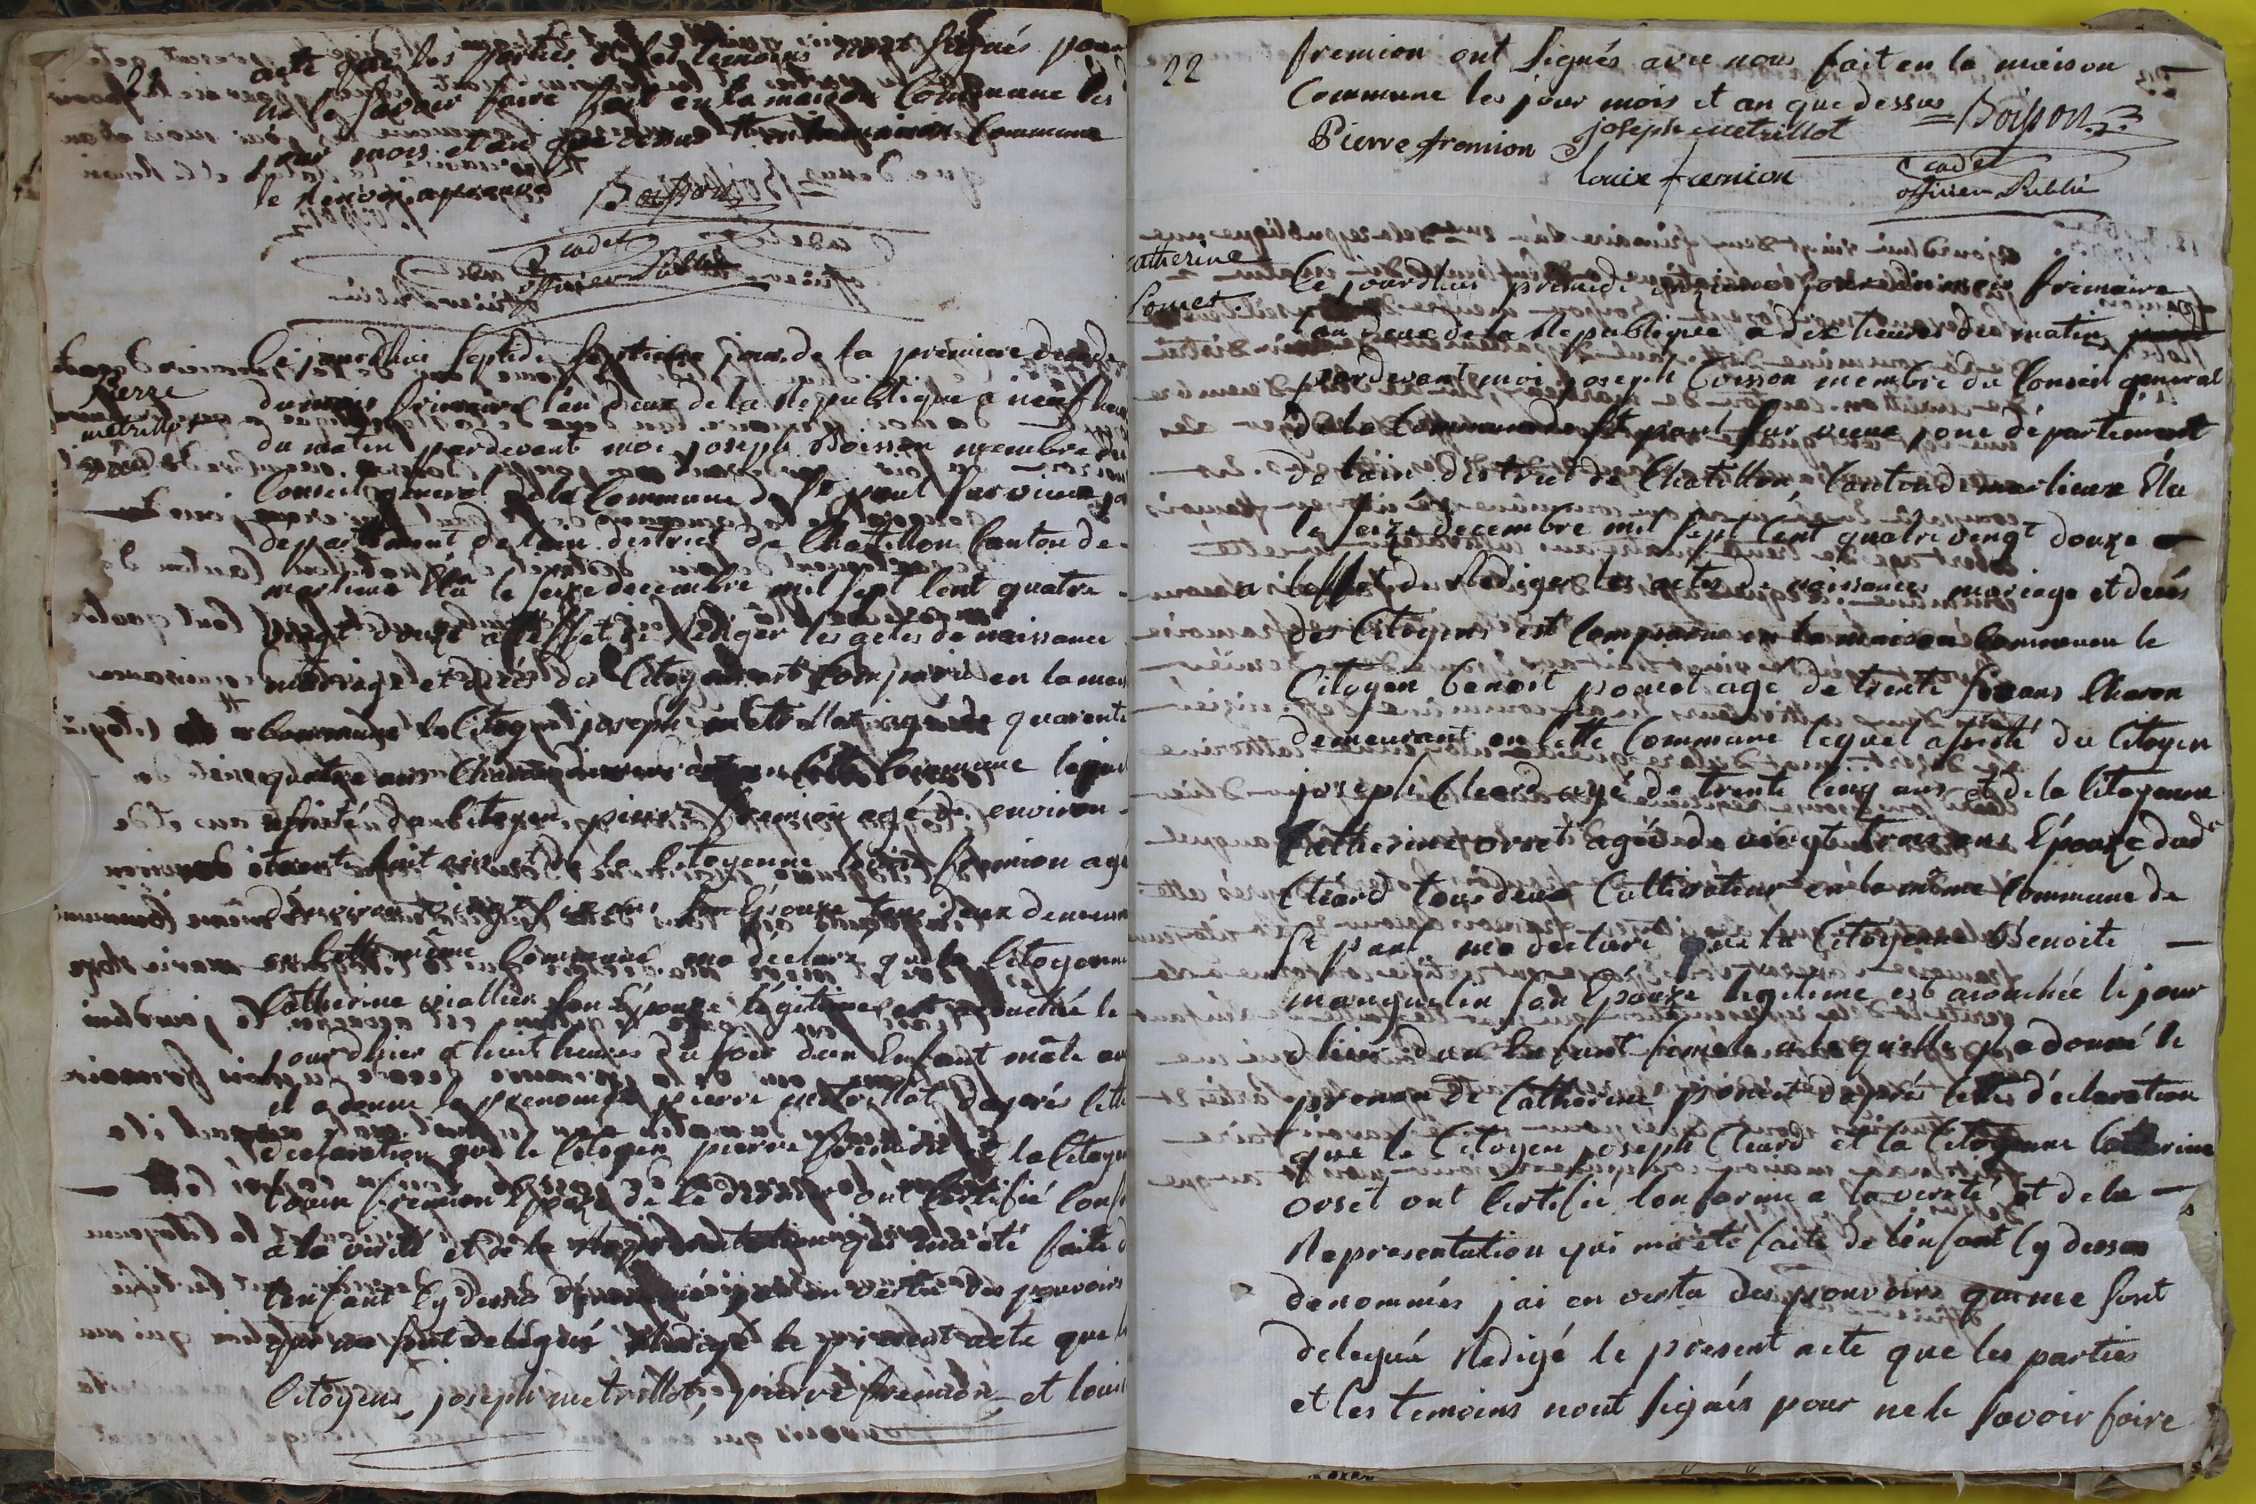 acte que les parties et les temoins nont signés pour
ne le savoir faire fait en la maison Commune les
jour mois et an que dessus en la maison Commune
le Renvoi aprouvé Boisson
cadet
officier Public
Pierre
metrillot
Cejourdhui Septidi Septieme jour de la premiere decade
du mois frimaire l'an deux de la Republique a neuf heures
du matin pardevant moi joseph Boisson membre du
Conseil general de la Commune de St paul sur vieux
departement de lain district de Chatillon Canton de
marlieux Elu le seize decembre mil sept Cent quatre
vingt douze a l'effet de Rediger les actes de naissance
mariage et décés des Citoyens est Comparu en la
Commune le Citoyen joseph metrillot agé de quarente
quatre ans demeurant en Cette Commune lequel
assisté du Citoyen pierre fremion agé de environ
trente huit ans et de la Citoyenne louise fremion agé
d'environ vingt six ans Epouze tous deux
en Cette même Commune ma declaré que la Citoyenne
Catherine viallier son Epouze légitime est acouchée le
jour dhier a huit heures du soir dun Enfant mâle
il a donné le prenom de pierre metrillot daprés Cette
declaration que le Citoyen pierre fremion et la
louise fremion Epouze de Ci dessus ont Certifié
a la verité et de la Representation qui ma été faite
lenfant Cy dessus dénommé jai en vertu des pouvoirs
qui me sont delegués Redigé le present acte que
Citoyens, joseph metrillot, pierre fremion, et
22
fremion ont signés avec nous fait en la maison
Commune les jour mois et an que dessus = Boisson
Pierre fremion joseph metrillot
louise fremion cadet
officier Public
Catherine
Ponet
Cejourdhui primidi onzieme jour du mois frimaire
lan deux de la Republique a dix heures du matin
pardevant moi joseph Boisson membre du Conseil general
de la Commune de St paul sur vieux jonc département
de lain district de Chatillon, Canton de marlieux Elu
le seize decembre mil sept Cent quatre vingt douze
a leffet de Rediger les actes de naissances mariage et décés
des Citoyens est Comparu en la maison Commune le
Citoyen benoit ponet agé de trente six ans Charon
demeurant en Cette Commune lequel assisté du Citoyen
joseph Cleard agé de trente Cinq ans et de la Citoyenne
Catherine orset agée de vingt trois ans Épouze dud.
Cléard tous deux Cultivateur en la même Commune de
St paul ma declaré que la Citoyenne Benoite
manguelin son Epouze legitime est acouchée le jour
dhier dun Enfant femele a laquelle a donné le
prenom de Catherine ponet daprés Cette déclaration
que le Citoyen joseph Cleard et la Citoyenne Catherine
orset ont Certifié Conforme a la verité et de la
Representation qui ma été faite de lenfant Cy dessus
denommés jai en vertu des pouvoirs qui me sont
delegué Redigé le présent acte que les parties
et les temoins nont signés pour ne le savoir faire